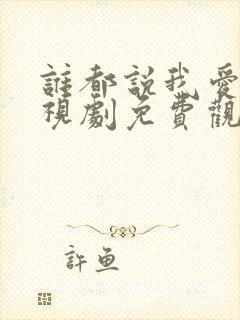 誰都説我愛
視劇免費觀
許魚